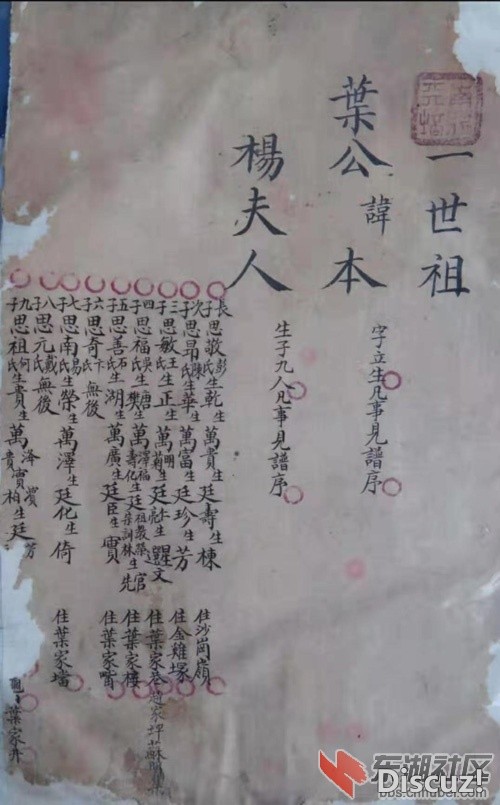 一世祖
葉公諱本 字立生凡事見譜序
楊夫人 生子九人凡事見譜序
長子思敬彭氏生乾生萬貴生廷壽生棟 住沙崗嶺
次子思昂陳氏生華生萬富生廷珍生芳 住金雞塚
三子思敏王氏生正生萬 生廷 生 文 住葉家
四子思福吳氏生唐樊生萬 生廷 生官先 住葉家樓
五子思善石氏生湖生萬廣生廷臣生賓 住葉家嘴
六子思奇卞氏無後
七子思南易氏生榮生萬澤生廷化生倚 住葉家壋
八子思元戴氏無後
九子思祖何氏生貴生萬 生柏生廷芳 葉家井
东湖社区
bbs.cnhubei.com
Discuz!